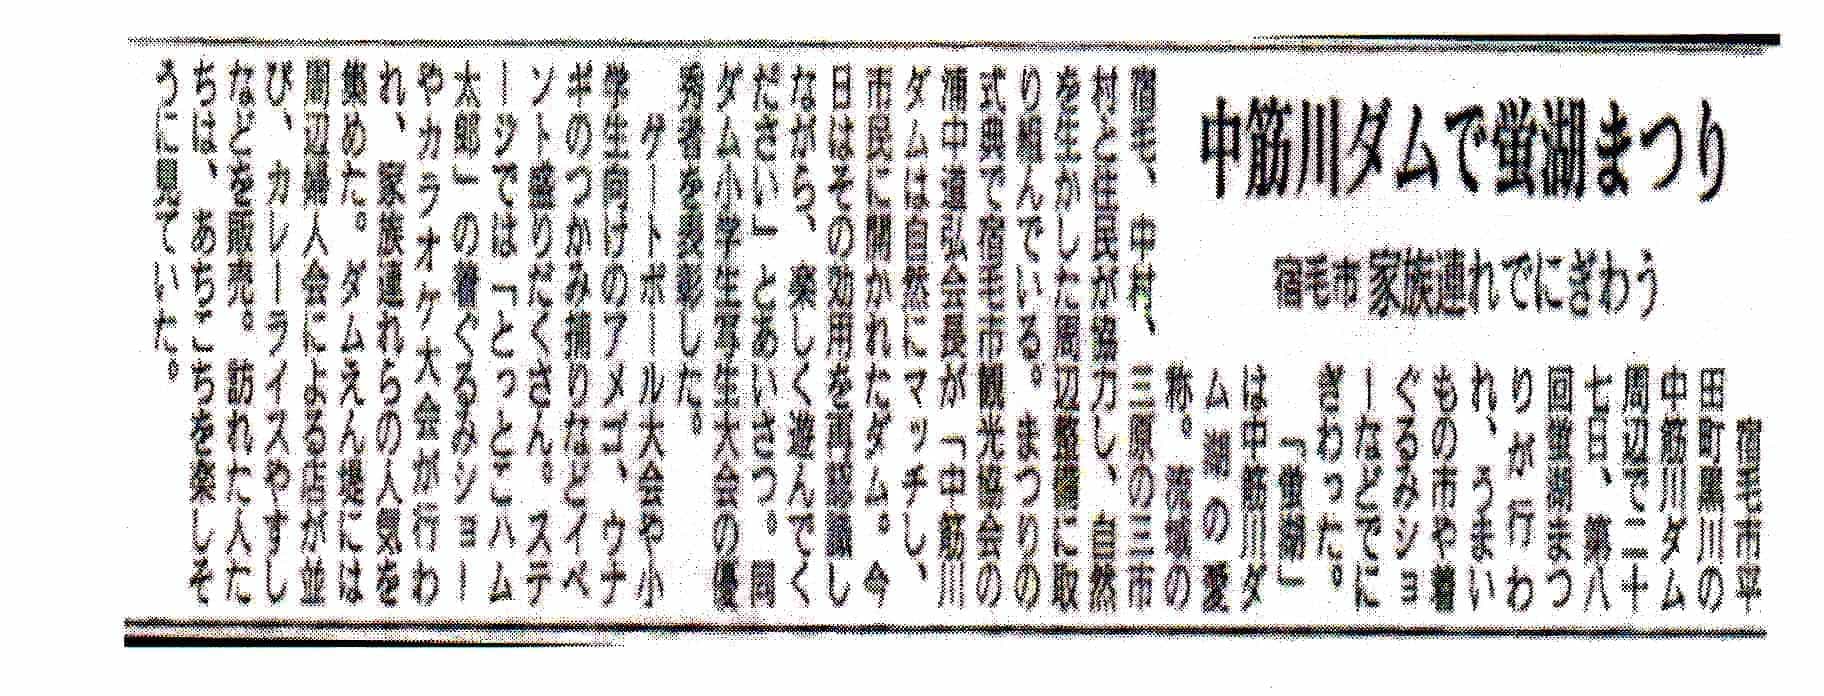 中筋川ダムで蛍湖まつり
宿毛市 家族連れでにぎわう
宿毛市平
田町黒川の
中筋川ダム
周辺で二十
七日、第八
回蛍湖まつ
りが行わ
れ、うまい
もの市や着
ぐるみショ
ーなどでに
ぎわった。
「蛍湖」
は中筋川ダ
ム湖の愛
称。流域の
宿毛、中村、三原の三市
村と住民が協力し、自然
を生かした周辺整備に取
り組んでいる。まつりの
式典で宿毛市観光協会の
浦中道弘会長が「中筋川
ダムは自然にマッチし、
市民に開かれたダム。今
日はその効用を再認識し
ながら、楽しく遊んでく
ださい」とあいさつ。同
ダム小学生写生大会の優
秀者を表彰した。
ゲートボール大会や小
学生向けのアメゴ、ウナ
ギのつかみ捕りなどイベ
ント盛りだくさん。ステ
ージでは「とっとこハム
太郎」の着ぐるみショー
やカラオケ大会が行わ
れ、家族連れらの人気を
集めた。ダムえん堤には
周辺婦人会による店が並
び、カレーライスやすし
などを販売。訪れた人た
ちは、あちこちを楽しそ
うに見ていた。